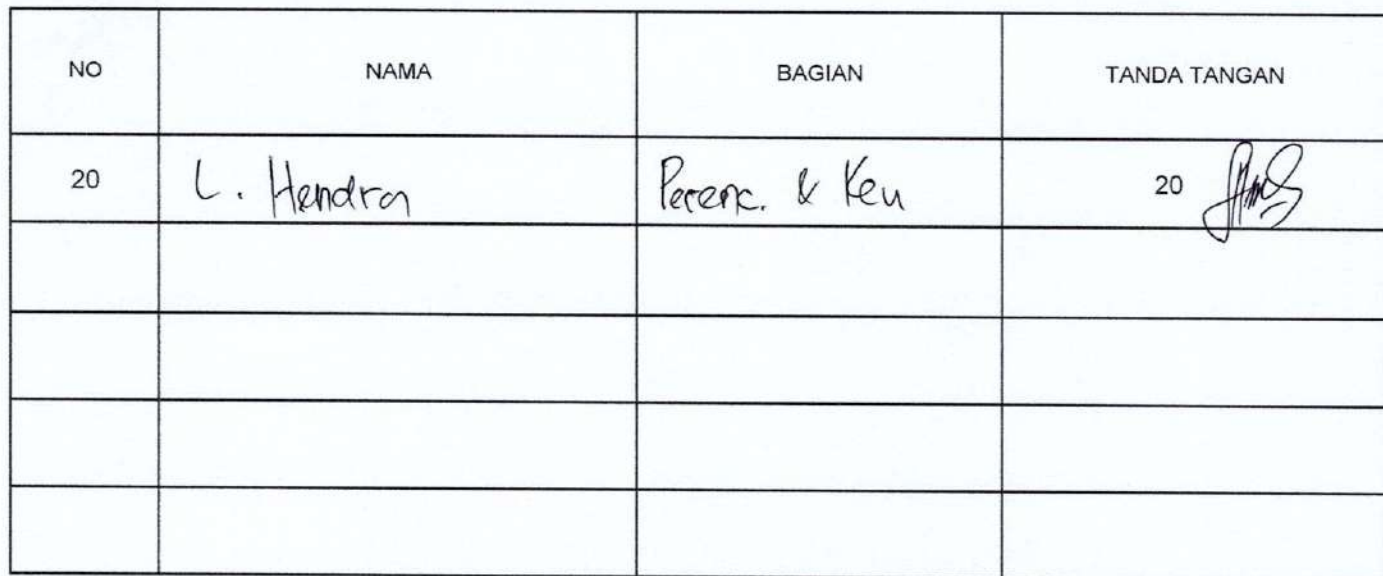 NO NAMA BAGIAN TANDA TANGAN
20 L. Hendra Perenc. & Keu 20